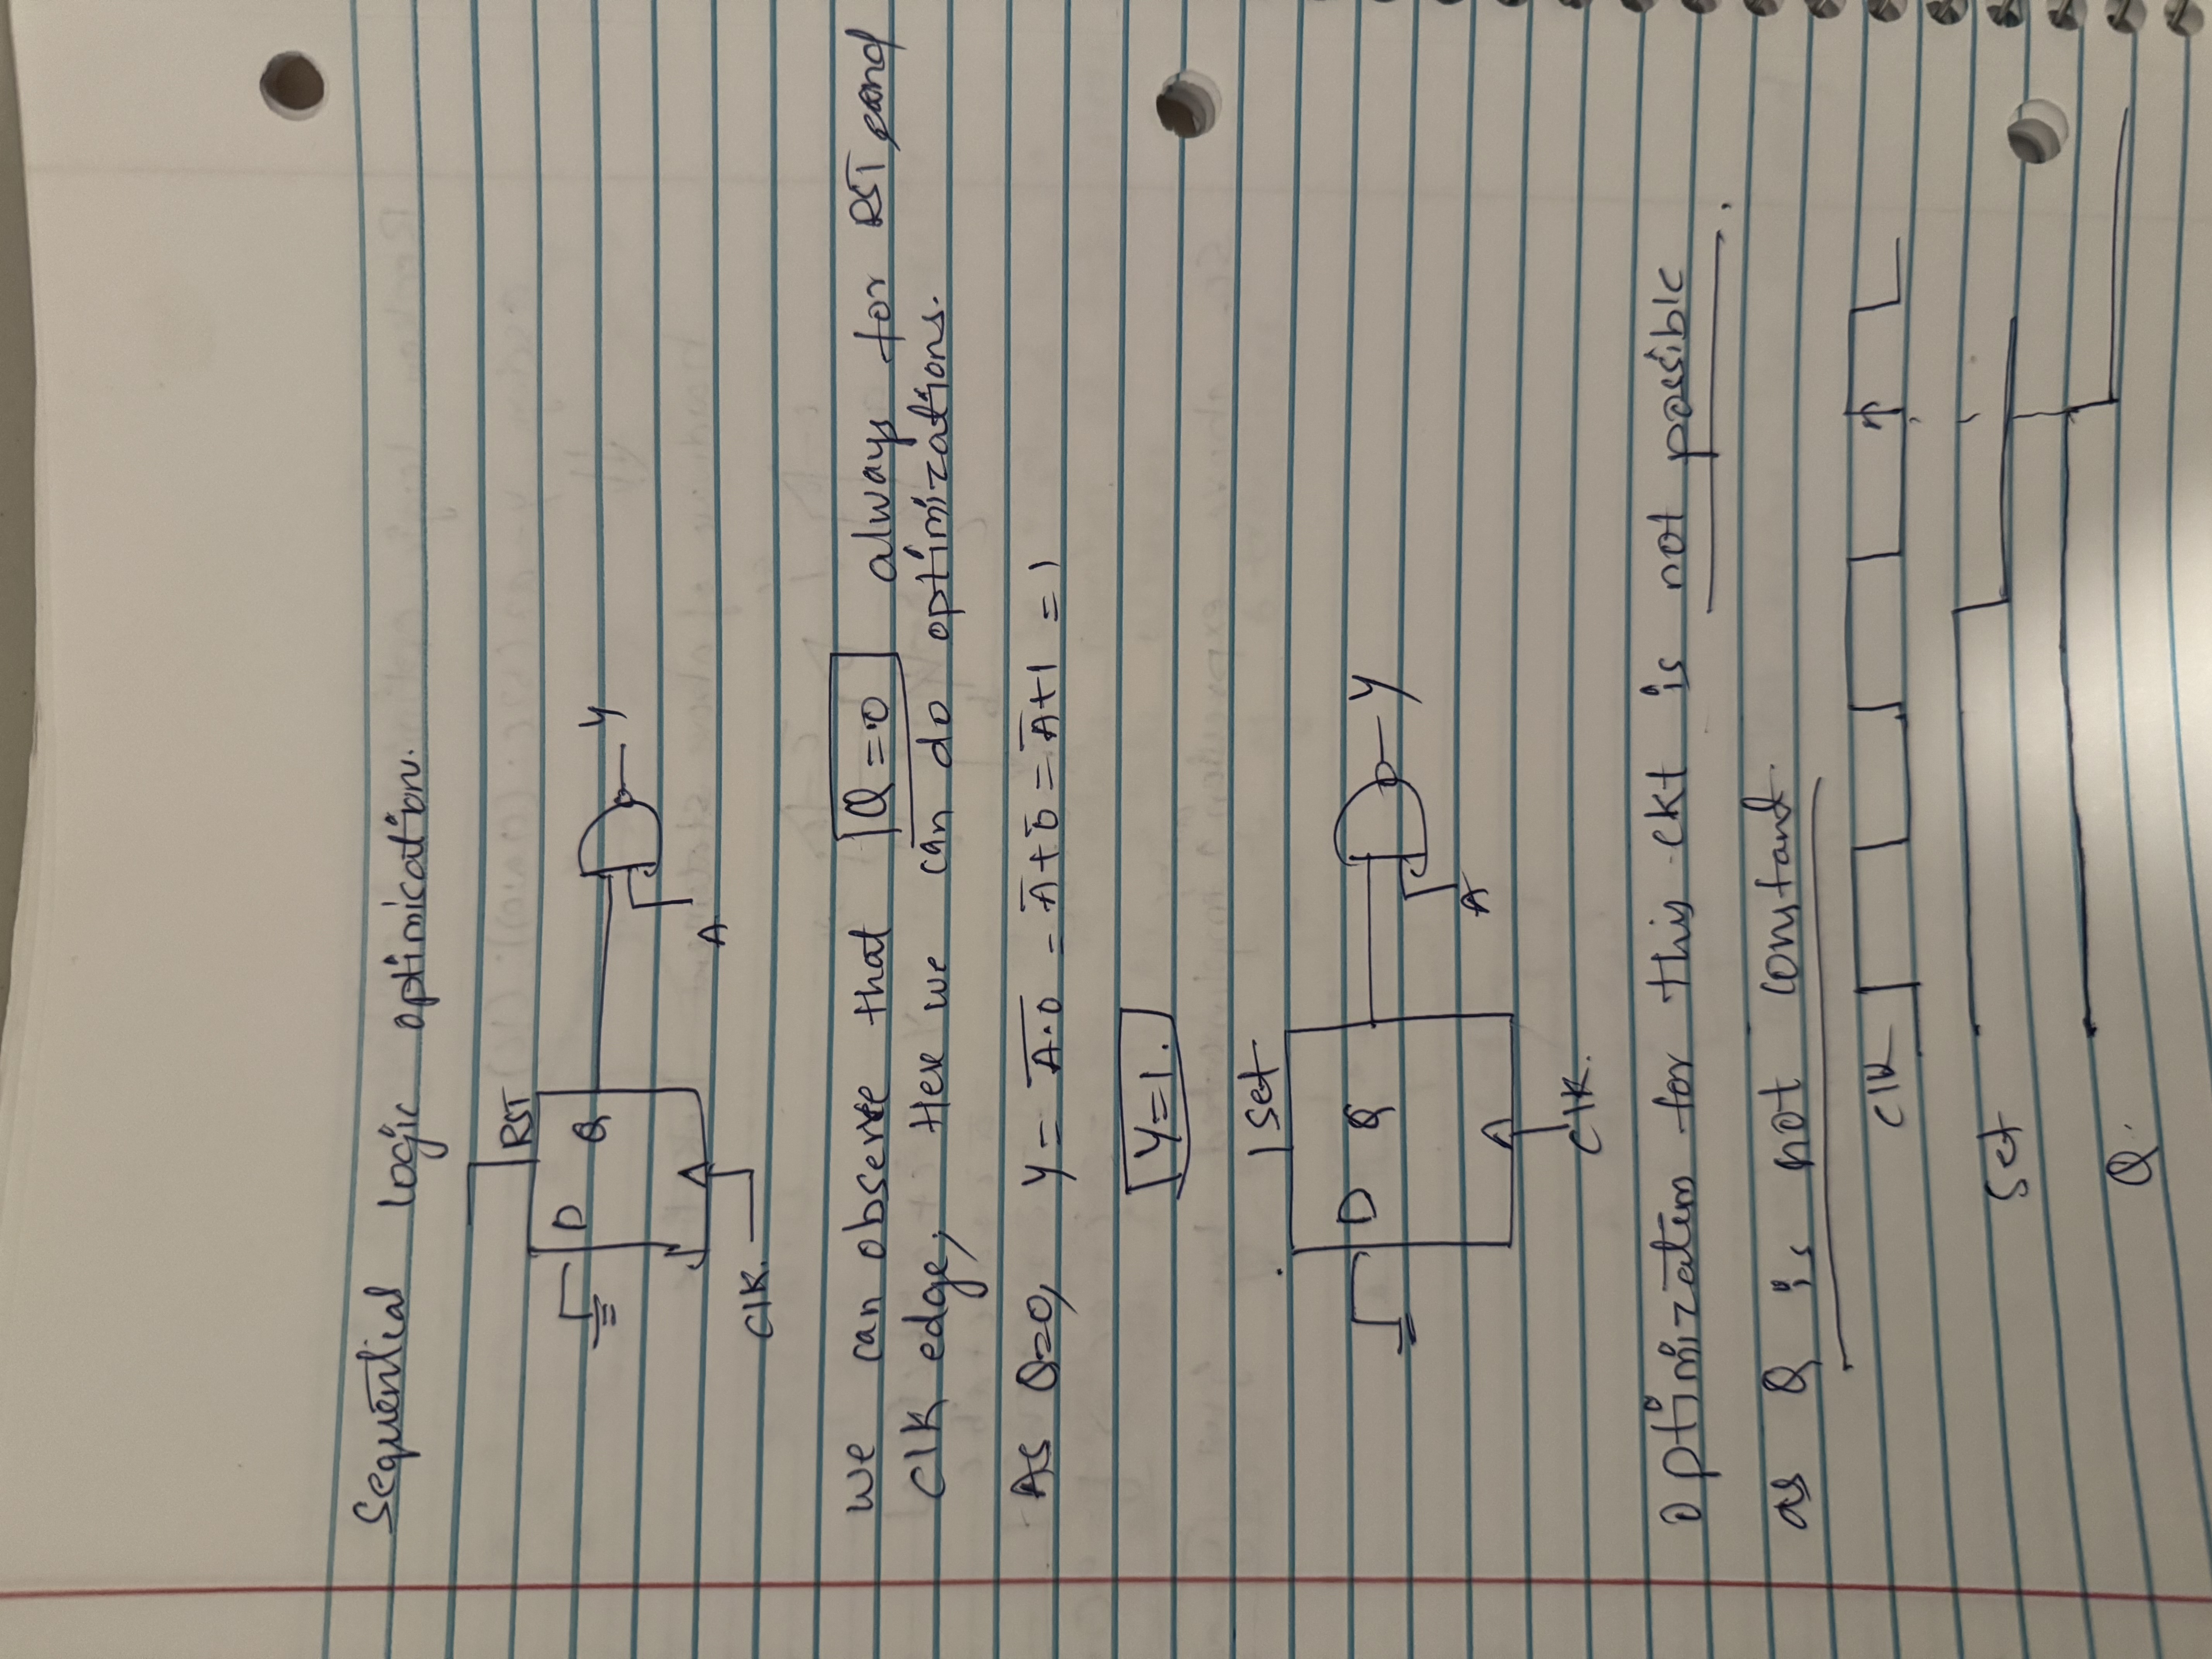 Sequential logic optimisation.
RST
D
Q
Y
A
ClK.
we can observe that Q=0 always for RST and
ClK edge, Here we can do optimizations.
As Q=0, Y = \overline{A·0} = \overline{A}+\overline{0} = \overline{A}+1 = 1
Y=1.
Set
D Q
Y
A
ClK.
Optimization for this ckt is not possible.
as Q is not constant.
Clk
Set
Q.